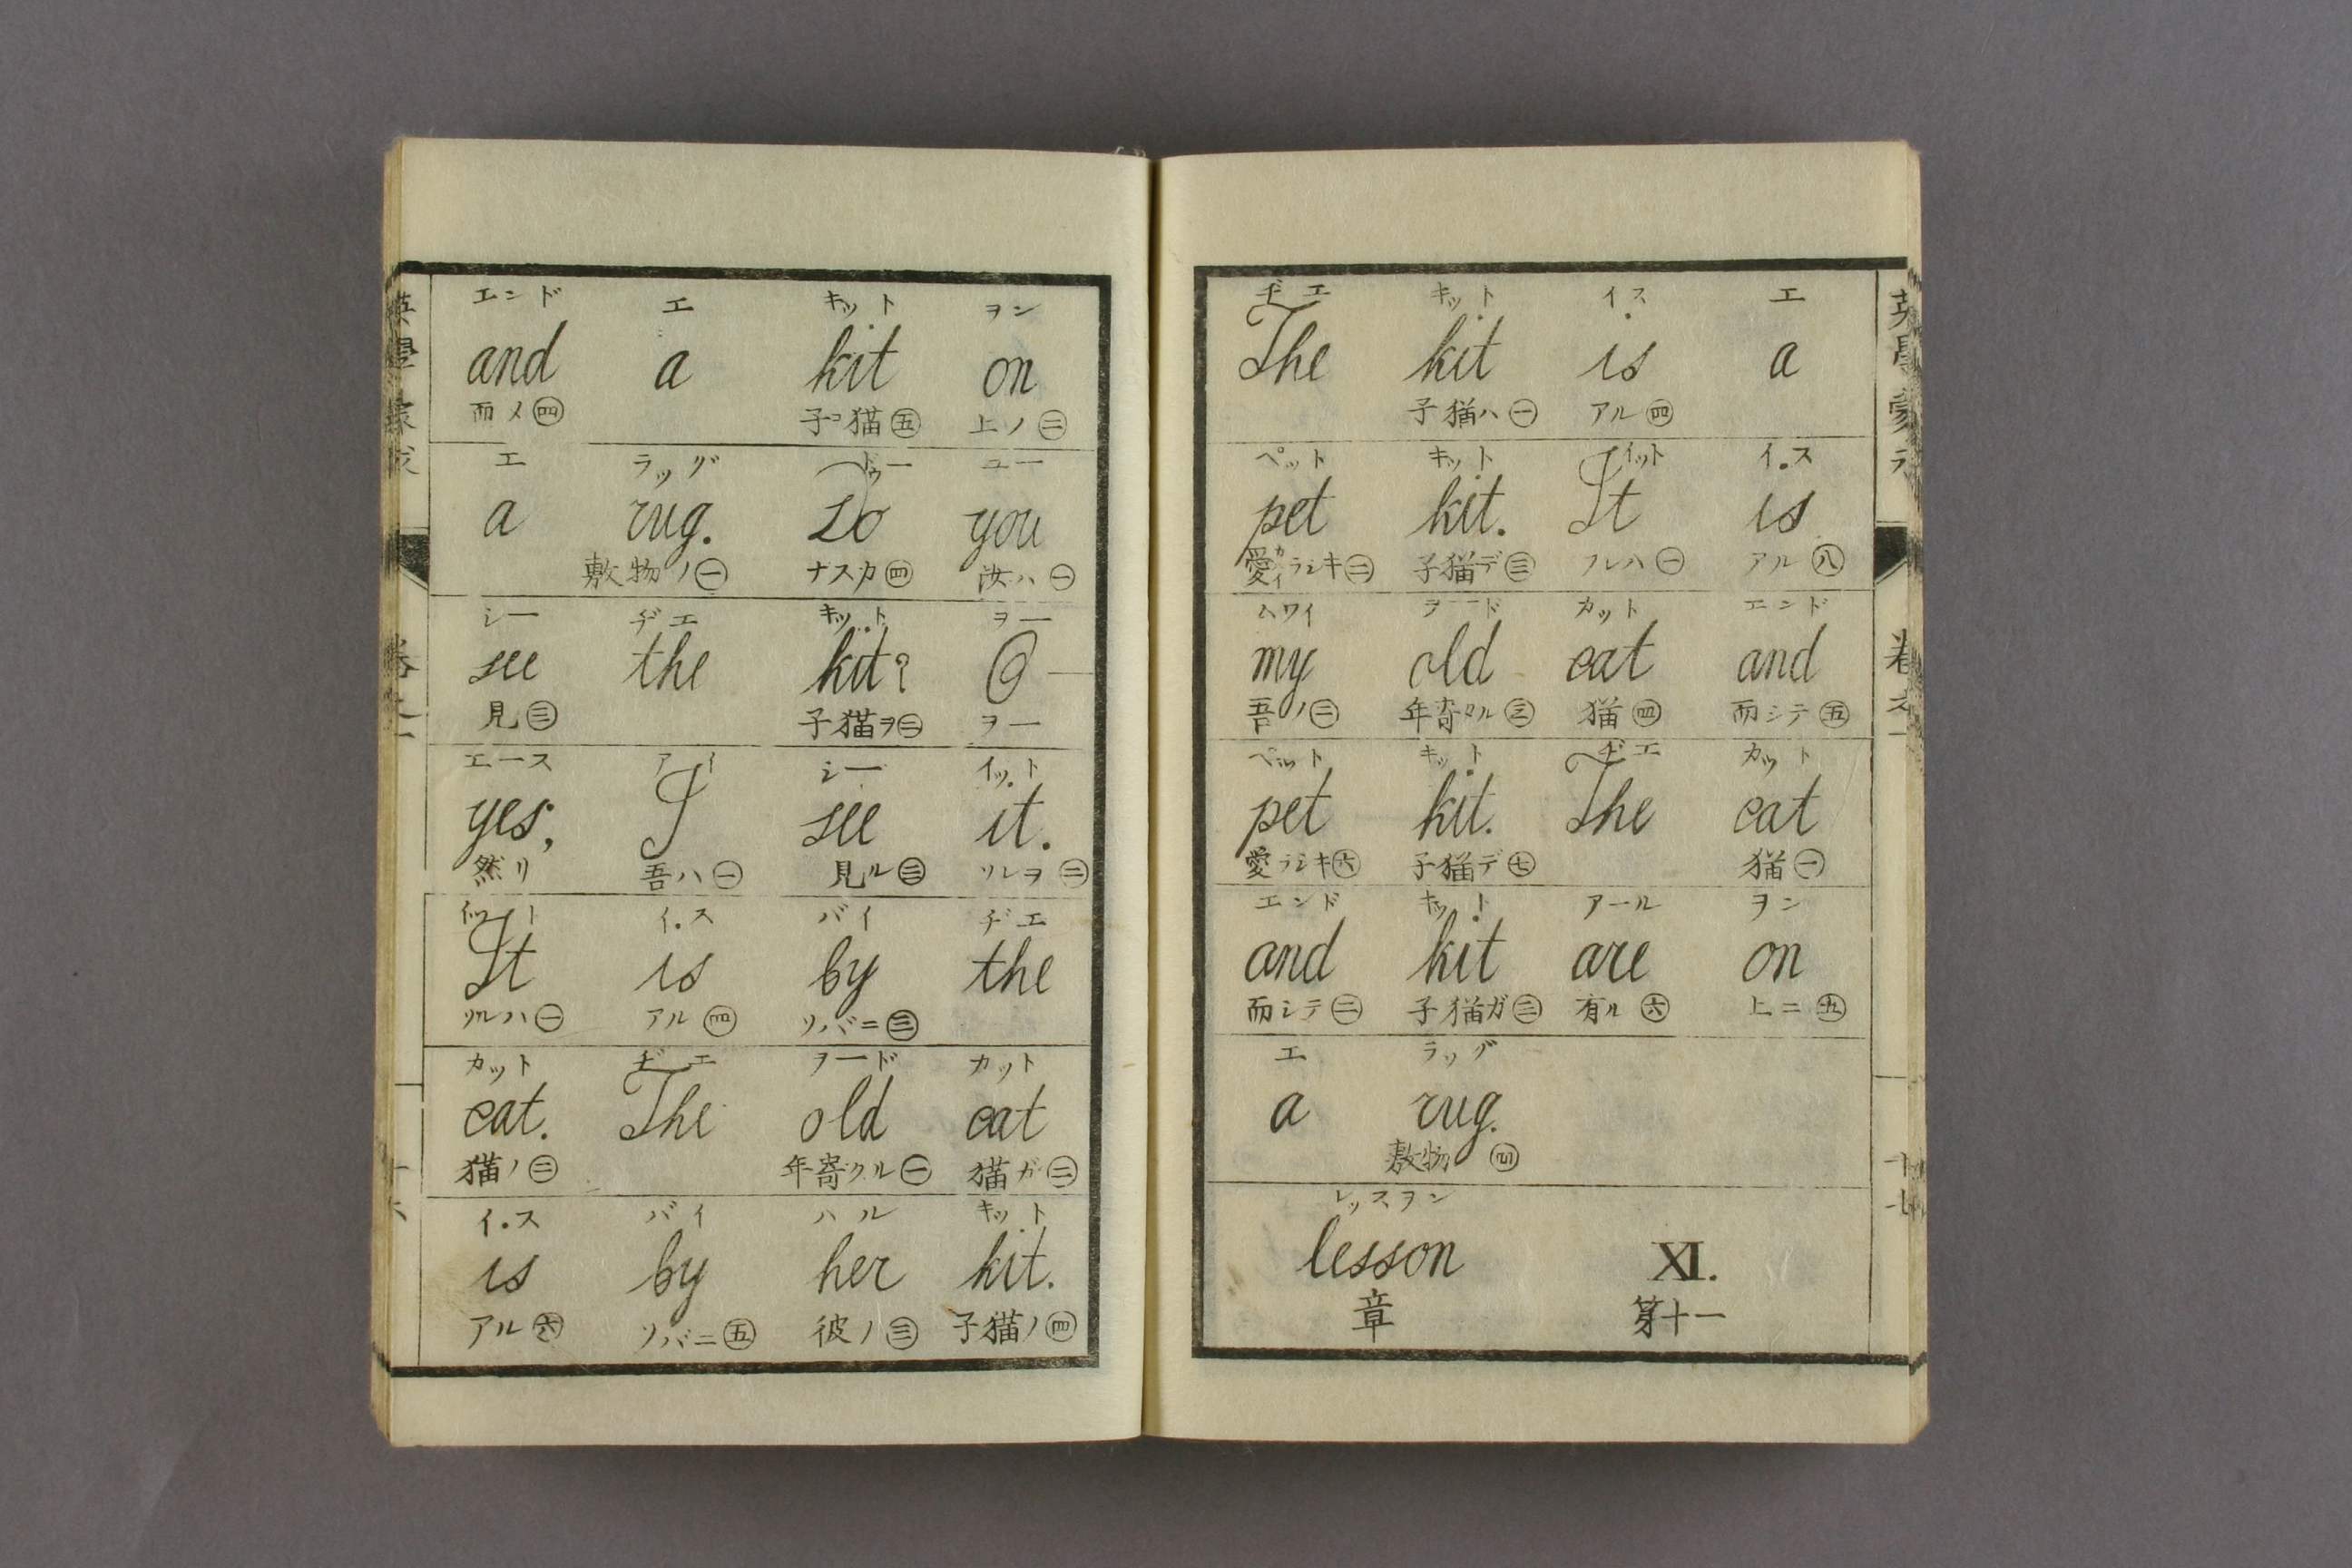 エンド エ キット ヲン
and a kit on
而メ㊃ 子コ猫㊄ 上ノ㊁
エ ラッグ ドゥー ユー
a rug. Do you
敷物ノ㊀ ナスカ㊃ 汝ハ㊀
シー ヂエ キット ヲー
see the kit? O
見㊂ 子猫ヲ㊁ ヲー
エース アイ シー イット
yes, I see it.
然リ 吾ハ㊀ 見ル㊂ ソレヲ㊁
イット イス バイ ヂエ
It is by the
ソルハ㊀ アル㊃ ソバニ㊂
カット ヂエ ヲード カット
cat. The old cat
猫ノ㊁ 年寄タル㊀ 猫ガ㊁
イス バイ ハル キット
is by her kit.
アル㊅ ソバニ㊄ 彼ノ㊂ 子猫ノ㊃
ヂエ キット イス エ
The kit is a
子猫ハ㊀ アル㊃
ペット キット イット イス
pet kit. It is
愛カイラシキ㊁ 子猫デ㊂ ソレハ㊀ アル㊇
ムワイ ヲード カット エンド
my old cat and
吾ノ㊁ 年寄タル㊂ 猫㊃ 而シテ㊄
ペット キット ヂエ カット
pet kit. The cat
愛ラシキ㊅ 子猫デ㊆ 猫㊀
エンド キット アール ヲン
and kit are on
而シテ㊁ 子猫ガ㊂ 有ル㊅ 上ニ㊄
エ ラッグ
a rug.
敷物㊃
レッスヲン
lesson XI.
章 第十一